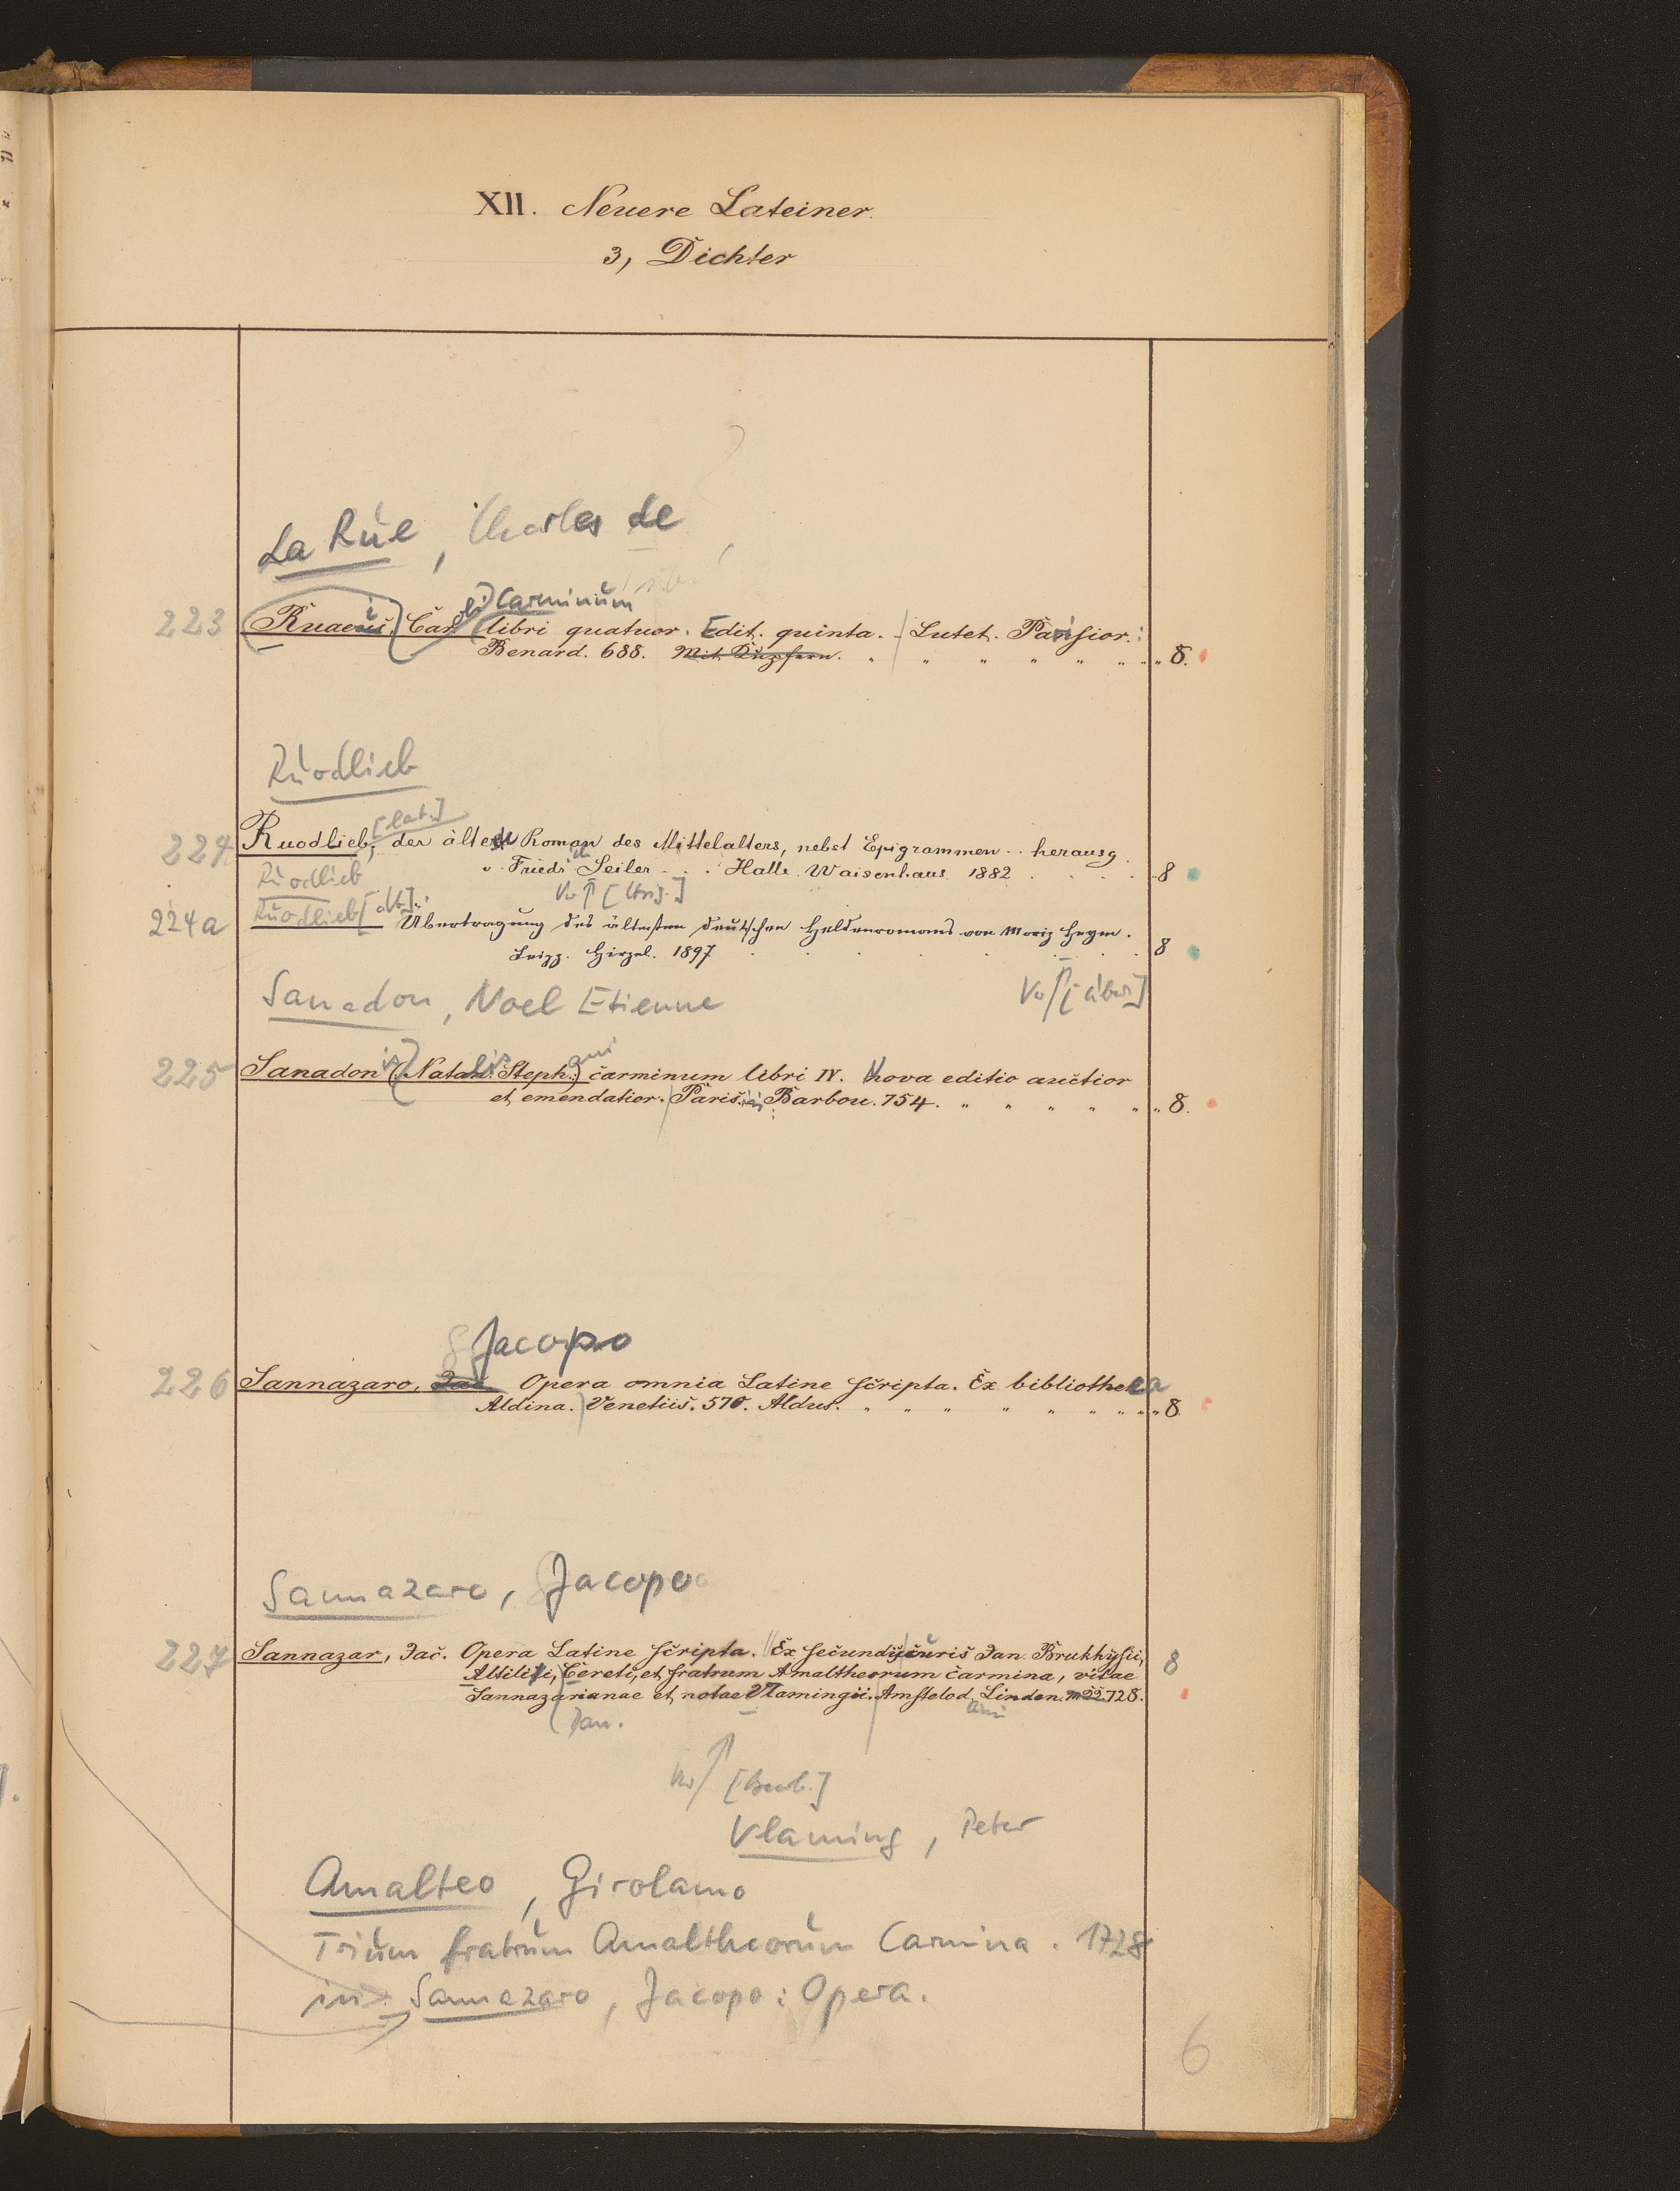 XII. Neuere Lateiner.
3, Dichter
La Rue, Charles de
Carminum
223 Ruaeus, Car. libri quatuor. Edit. quinta. Lutet. Parisior.:
Benard. 688. Mit Kupfern. 8.
Ruodlieb
[lat.]
224 Ruodlieb, der älteste Roman des Mittelalters, nebst Epigrammen .. herausg.
v. Friedr. Seiler . . . Halle. Waisenhaus 1882 . . . . 8
Ruodlieb
Vo ↑ [Hrsg.]
224a Ruodlieb [dt.]: Übertragung des ältesten deutschen Heldenromans von Moriz Heyne.
Leipz. Hirzel. 1897 . . . . . 8
Sanadon, Noel Etienne
Vo ↑ [Übers.]
225 Sanadonis (Natalis Stephani) carminum libri IV. Nova editio auctior
et emendatior. Parisiis: Barbou. 754. 8.
Jacopo
226 Sannazaro, Jac. Opera omnia Latine scripta. Ex bibliotheca
Aldina. Venetiis. 570. Aldus. 8.
Sannazaro, Jacopo
227 Sannazar, Jac. Opera Latine scripta. Ex secundis curis Jan. Brukhysii, 8
Altilii, Cereti, et fratrum Amaltheorum carmina, vitae
Sannazarianae et notae Vlamingii. Amstelod. Linden. 728.
Jan.
Vo ↑ [Bearb.]
Vlaming, Peter
Amalteo, Girolamo
Trium fratrum Amaltheorum Carmina. 1728
in: Sannazaro, Jacopo: Opera.
6